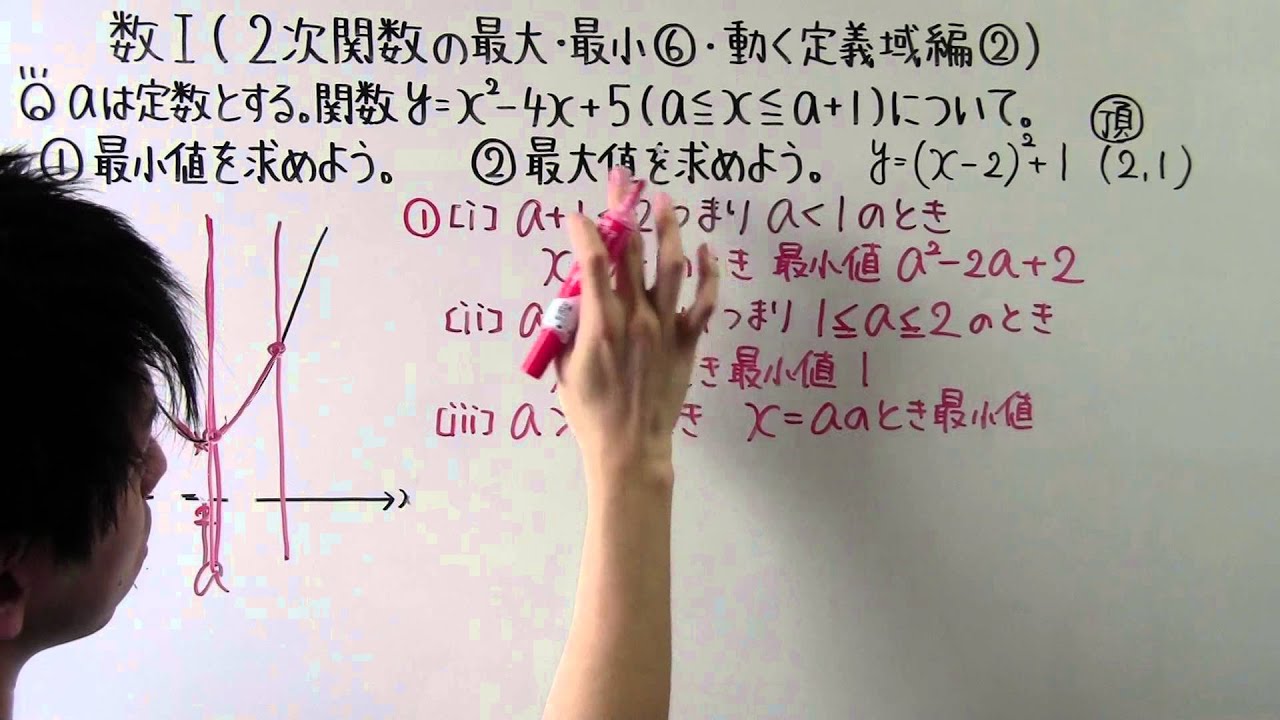 数I(2次関数の最大・最小⑥・動く定義域編②)
aは定数とする。関数y=x²-4x+5(a≦x≦a+1)について。
①最小値を求めよう。 ②最大値を求めよう。 y=(x-2)²+1 頂 (2,1)
①[i] a+1<2つまりa<1のとき
x き 最小値 a²-2a+2
[ii] a つまり1≦a≦2のとき
き最小値1
[iii] a> き x=aaとき最小値
2
x
a